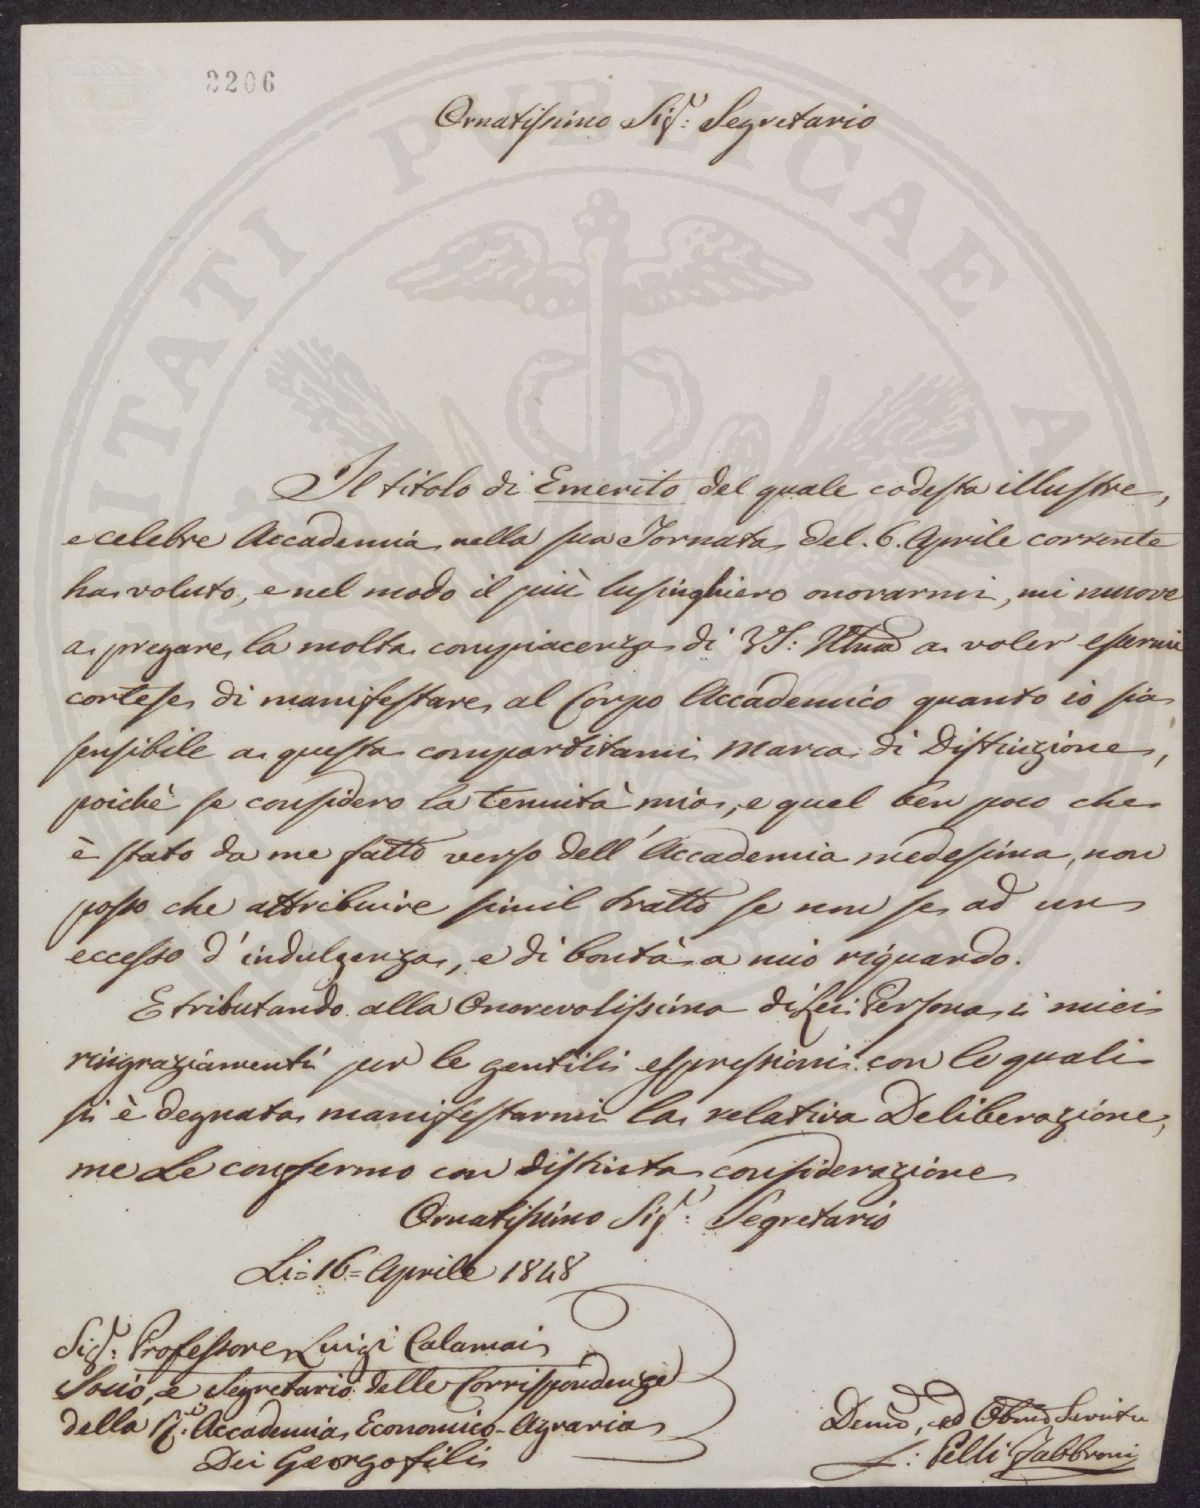 2206
PUBLICAE
Ornatissimo Sigr: Segretario
Il titolo di Emerito del quale codesta illustre,
e celebre Accademia nella sua Tornata del. 6. Aprile corrente
ha voluto, e nel modo il più lusinghiero onorarmi, mi muove
a pregare la molta compiacenza di VS: Illma a voler essermi
cortese di manifestare al Corpo Accademico quanto io sia
sensibile a questa compartitami marca di Distinzione,
poichè se considero la tenuità mia, e quel ben poco che
è stato da me fatto verso dell'Accademia medesima, non
posso che attribuire simil tratto se non se ad un
eccesso d'indulgenza, e di bontà a mio riguardo.
E tributando alla Onorevolissima di Lei Persona i miei
ringraziamenti per le gentili espressioni con le quali
si è degnata manifestarmi la relativa Deliberazione,
me Le confermo con distinta considerazione
Ornatissimo Sigr: Segretario
Li= 16= Aprile 1848
Sigr: Professore Luigi Calamai
Socio, e Segretario delle Corrispondenze
della R: Accademia Economico-Agraria
Dei Georgofili
Devmo, ed Obbmo Servitu
: Pelli Fabbroni